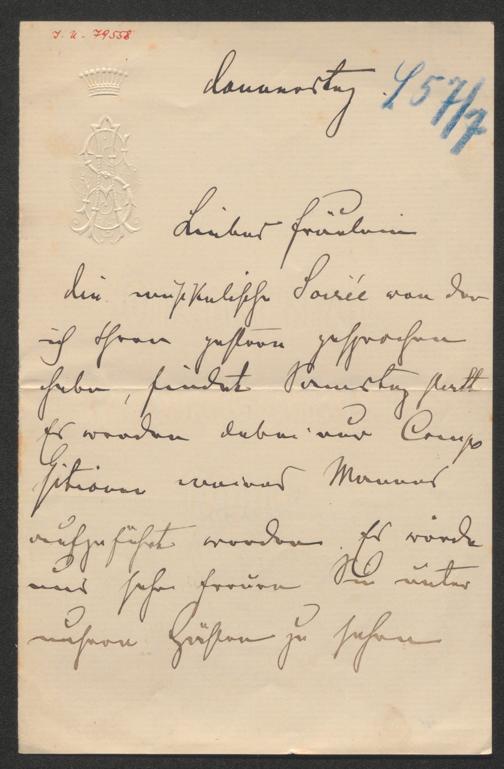 I. N. 79558
Donnerstag.
957/7
Liebes Fräulein
die musikalische Soirée von der
ich Ihnen gestern gesprochen
habe, findet Samstag statt
Es werden dabei nur Comp
sitionen meines Mannes
aufgeführt werden. Es würde
uns sehr freuen Sie unter
unsern Gästen zu sehen